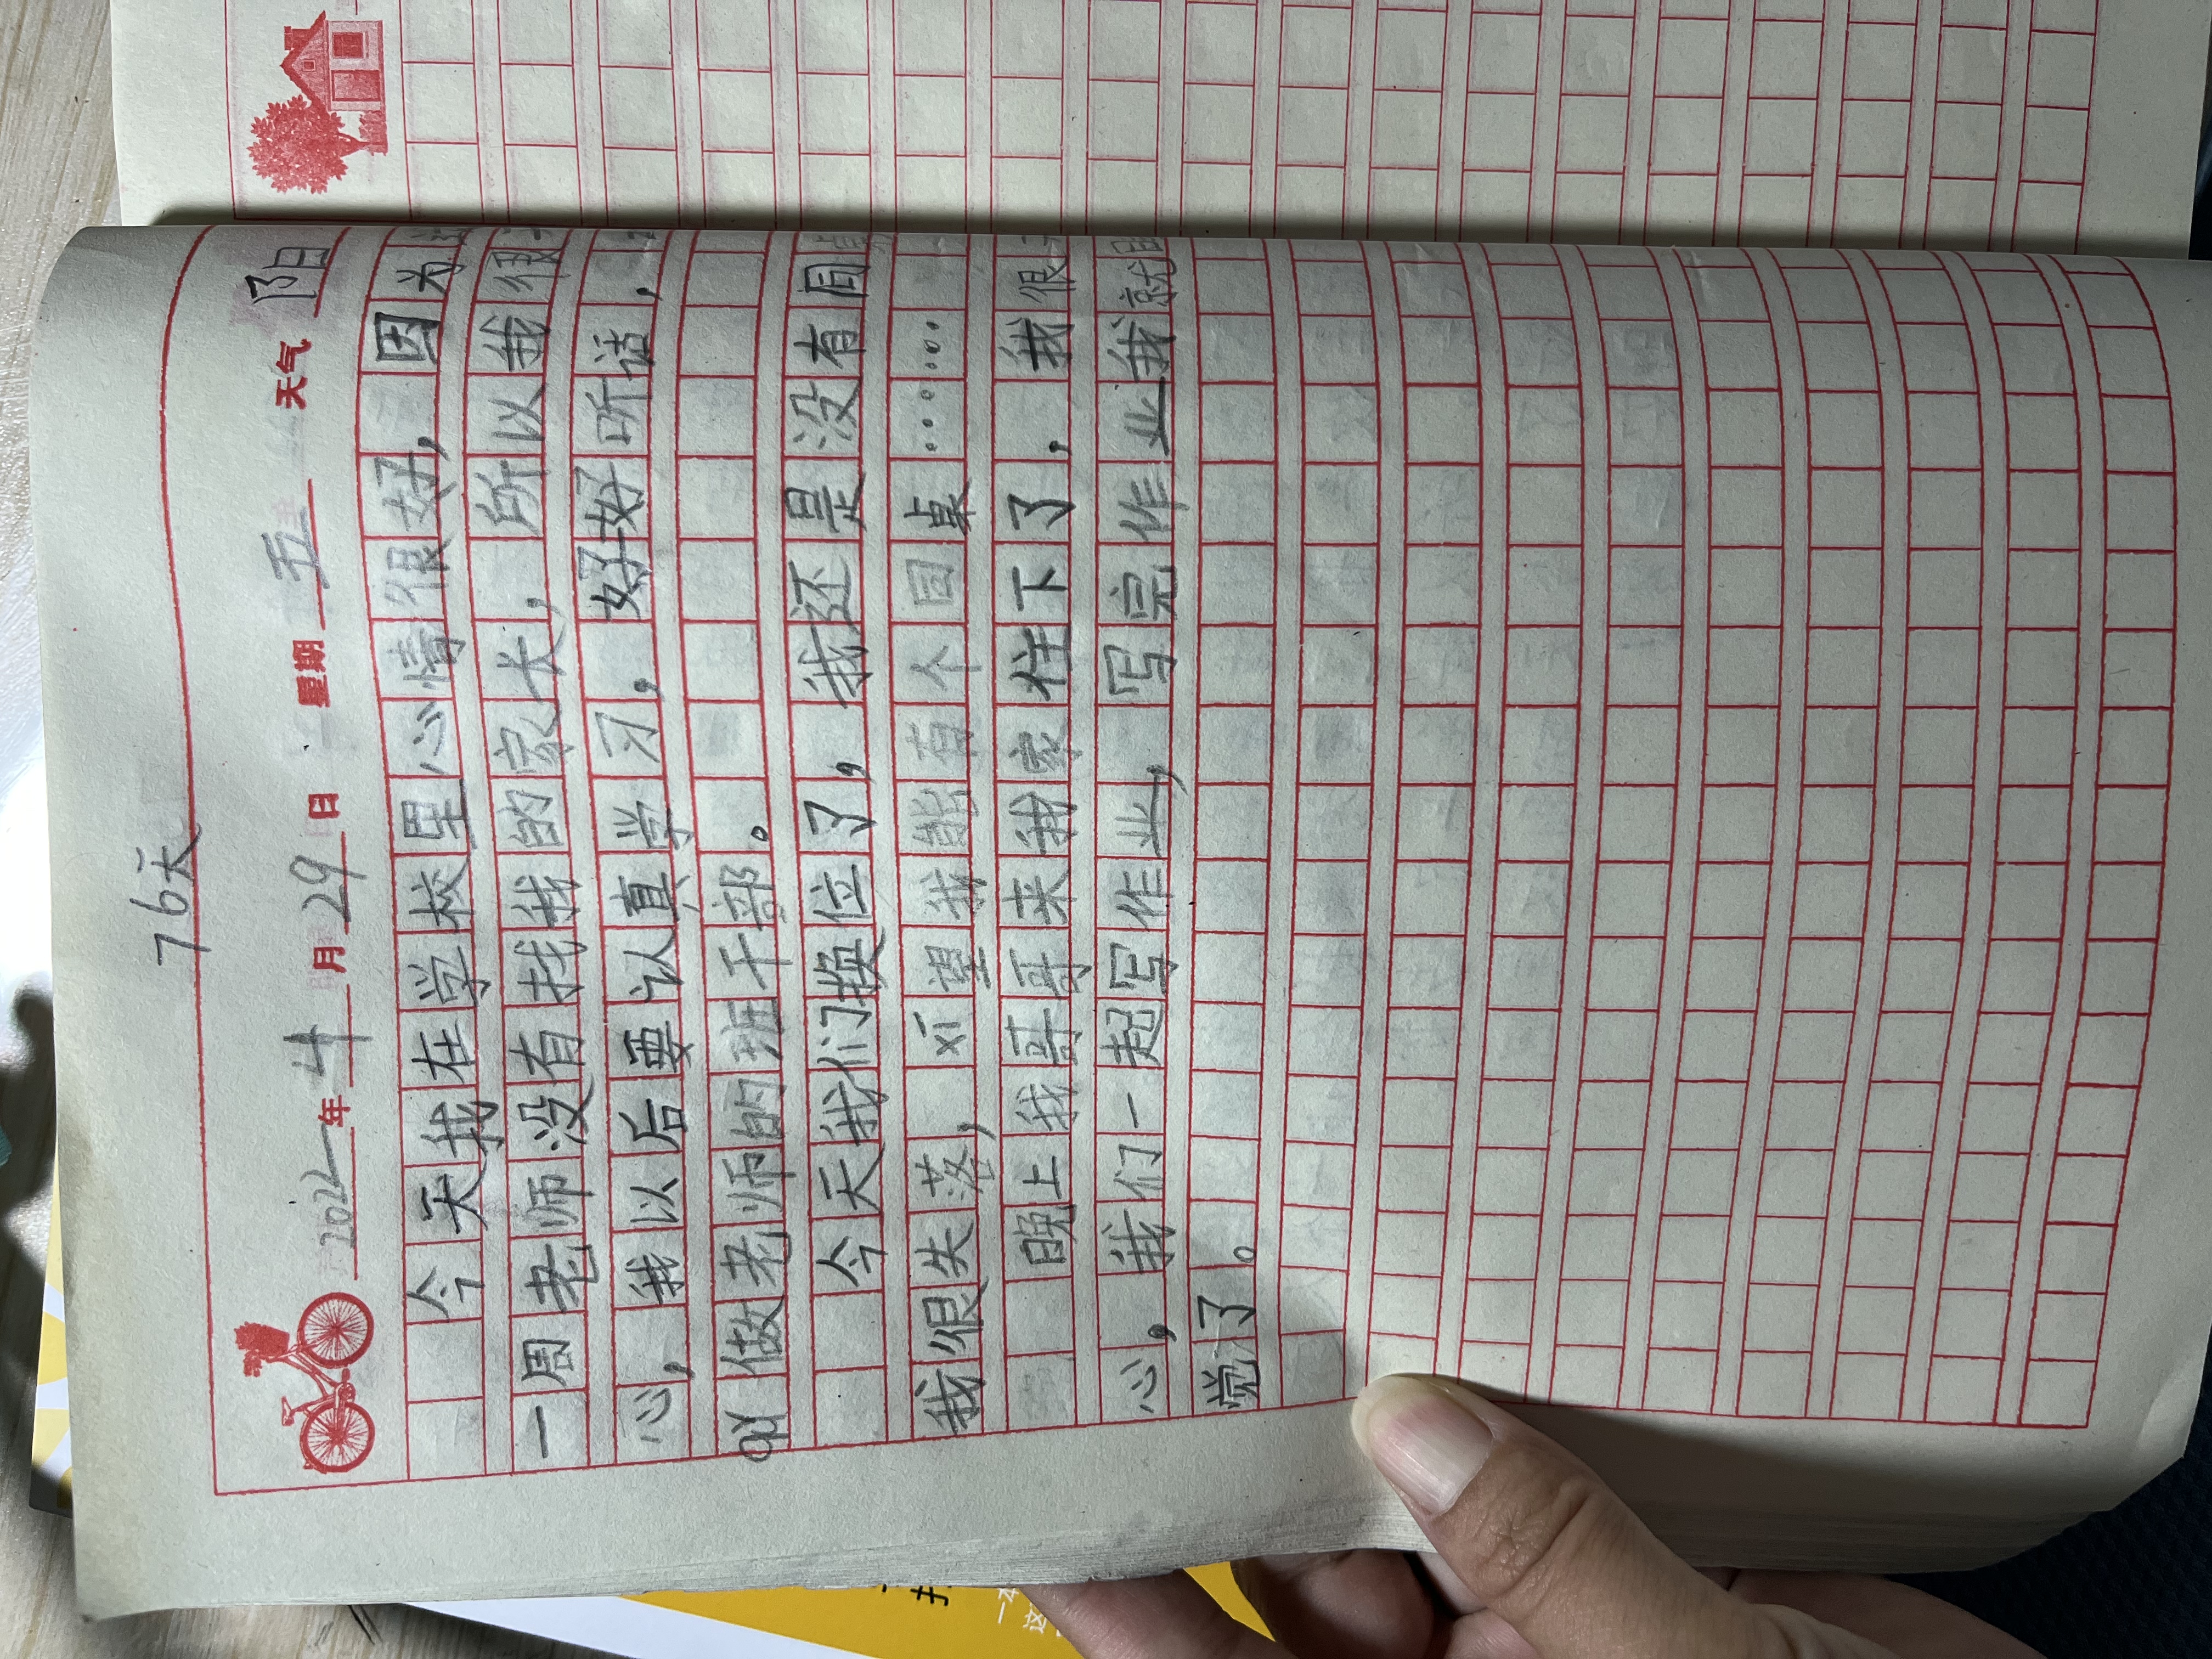 76天
2022年4月29日 星期五 天气 阳
今天我在学校里心情很好，因为
一周老师没有找我的家长，所以我很
心，我以后要认真学习，好好听话，
做老师的班干部。
今天我们换位了，我还是没有同
我很失落，xī望我能有个同桌……
晚上我哥哥来我家住下了，我很
心，我们一起写作业，写完作业我就
觉了。